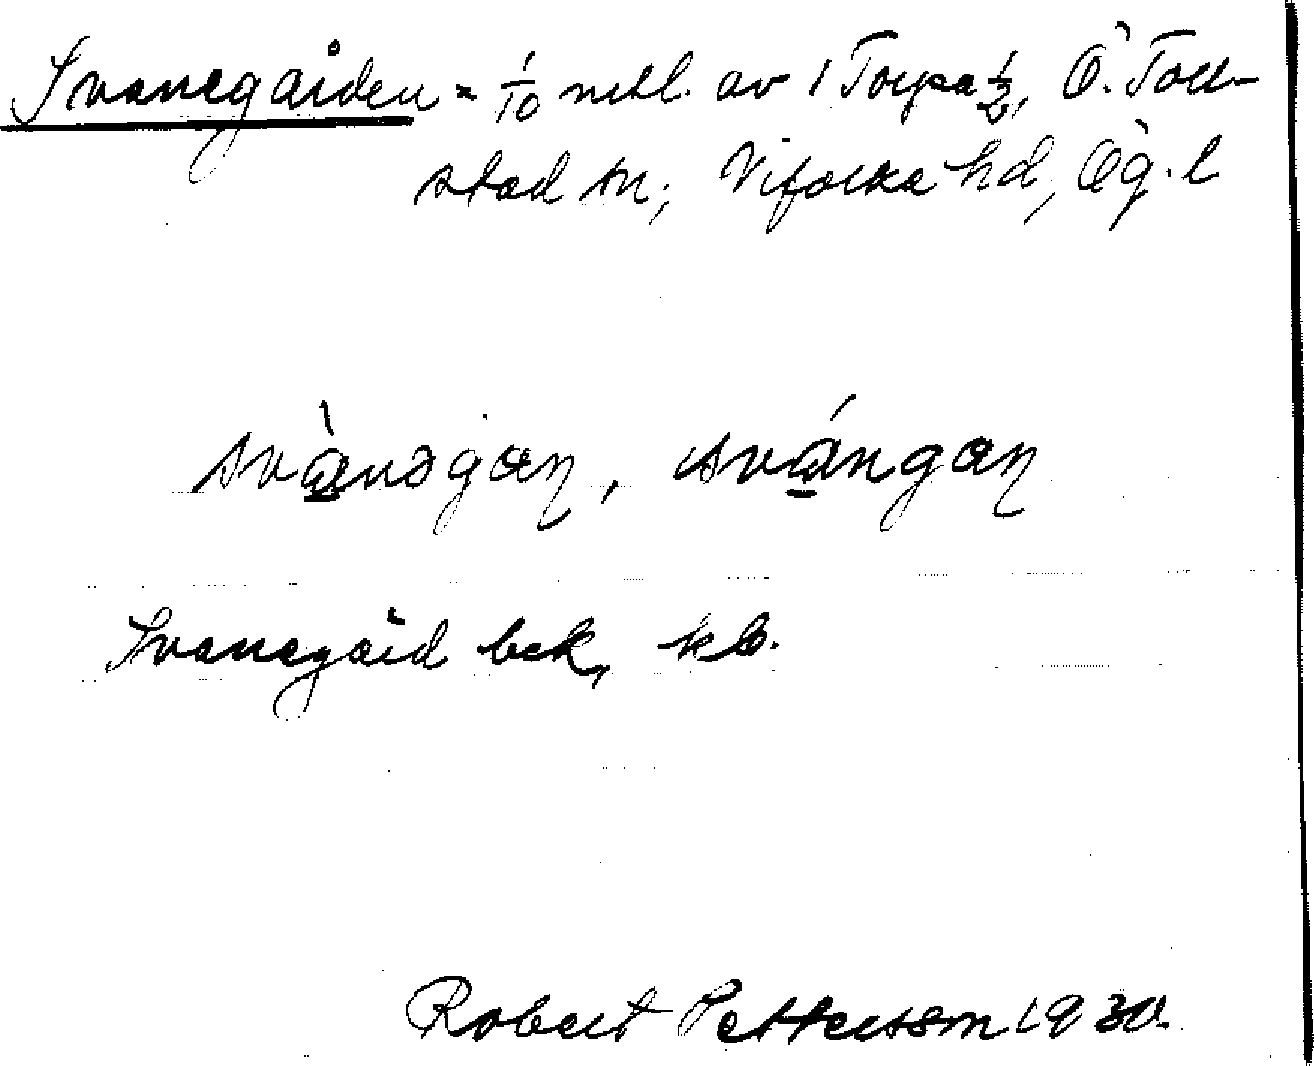 Svanegården = 1/10 mtl. av 1 Torpa 1/2, Ö. Toll-
stad sn; Vifolka hd, Ög. l
svànəgaɳ, svángaɳ
Svanegård bek, kb.
Robert Pettersson 1930.